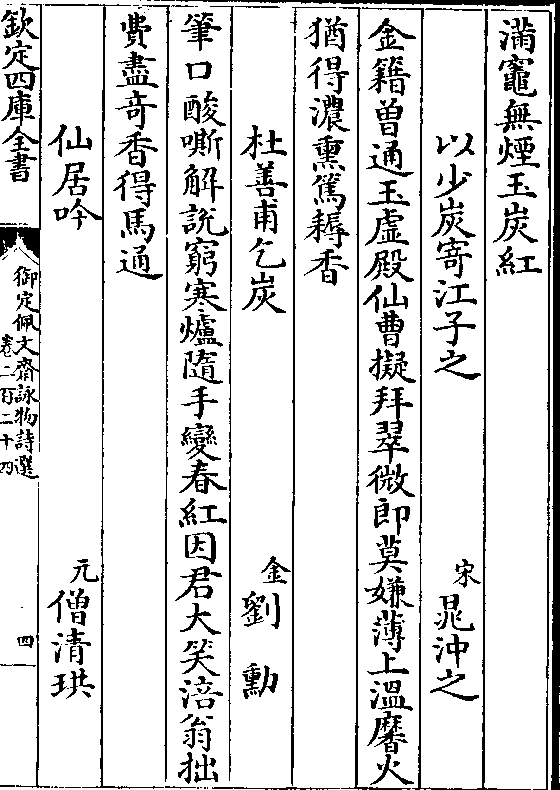 滿竈無煙玉炭紅
以少炭寄江子之 宋 晁沖之
金籍曾通玉虛殿仙曹擬拜翠微郎莫嫌薄上溫黁火
猶得濃熏篤耨香
杜善甫乞炭 金 劉勳
筆口酸嘶解說窮寒爐隨手變春紅因君大笑涪翁拙
費盡竒香得馬通
仙居吟 元 僧清珙
欽定四庫全書
御定佩文齋詠物詩選
卷二百二十四
四